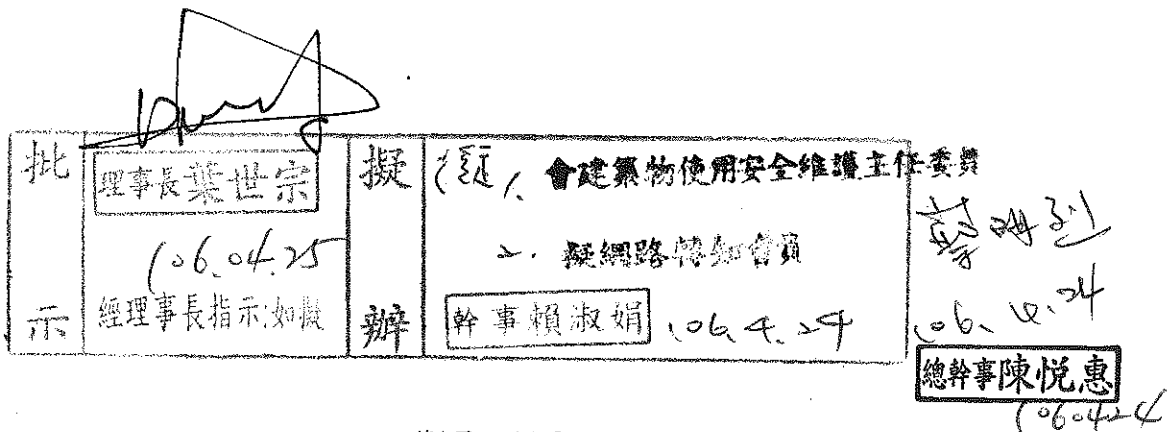 批示
理事長葉世宗
106.04.25
經理事長指示:如擬
擬辦
1、會建築物使用安全維護主任委員
2. 擬網路轉知會員
幹事賴淑娟 106.4.24
106.4.24
總幹事陳悅惠
106.04.24